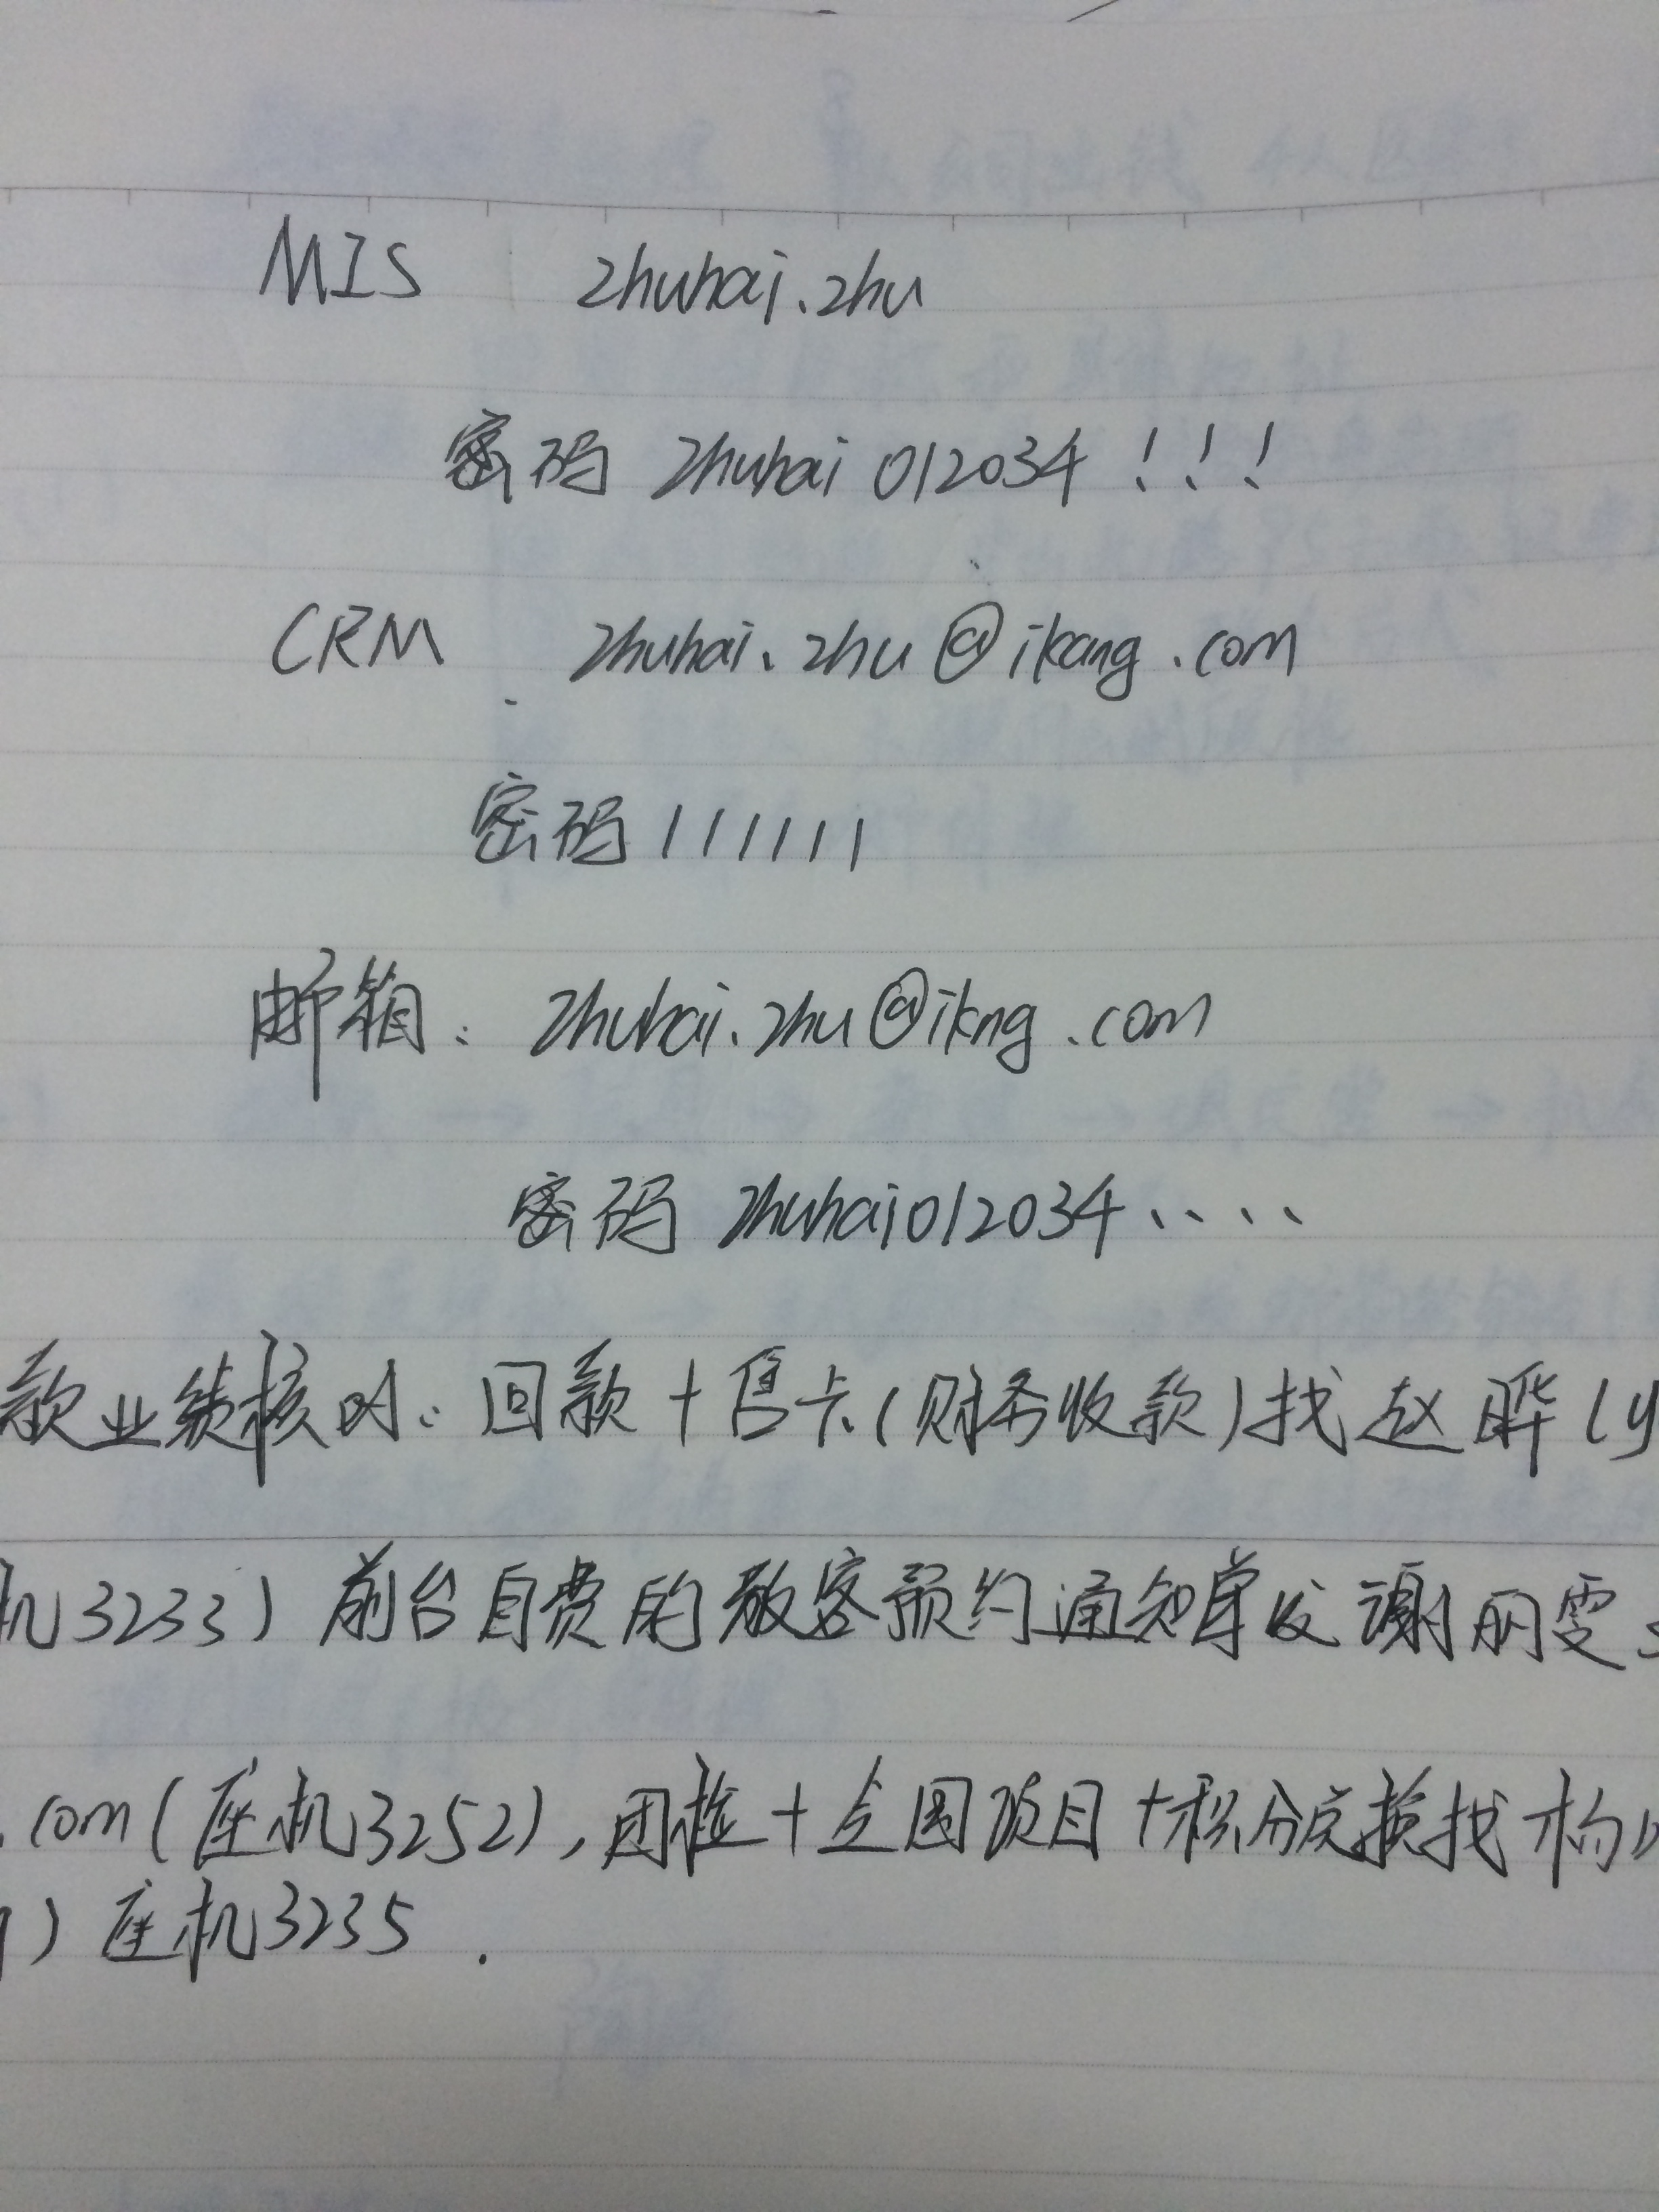 MIS zhuhai.zhu
密码 zhuhai 012034 ! ! !
CRM zhuhai.zhu@ikang.com
密码 111111
邮箱: zhuhai.zhu@ikng.com
密码 zhuhai012034....
款业绩核对: 回款+售卡(财务收款)找赵晔(y
机3233)前台自费的散客预约通知单发谢丽雯
.com(座机3252),团检+全国项目+积分兑换找杨
)座机3235.